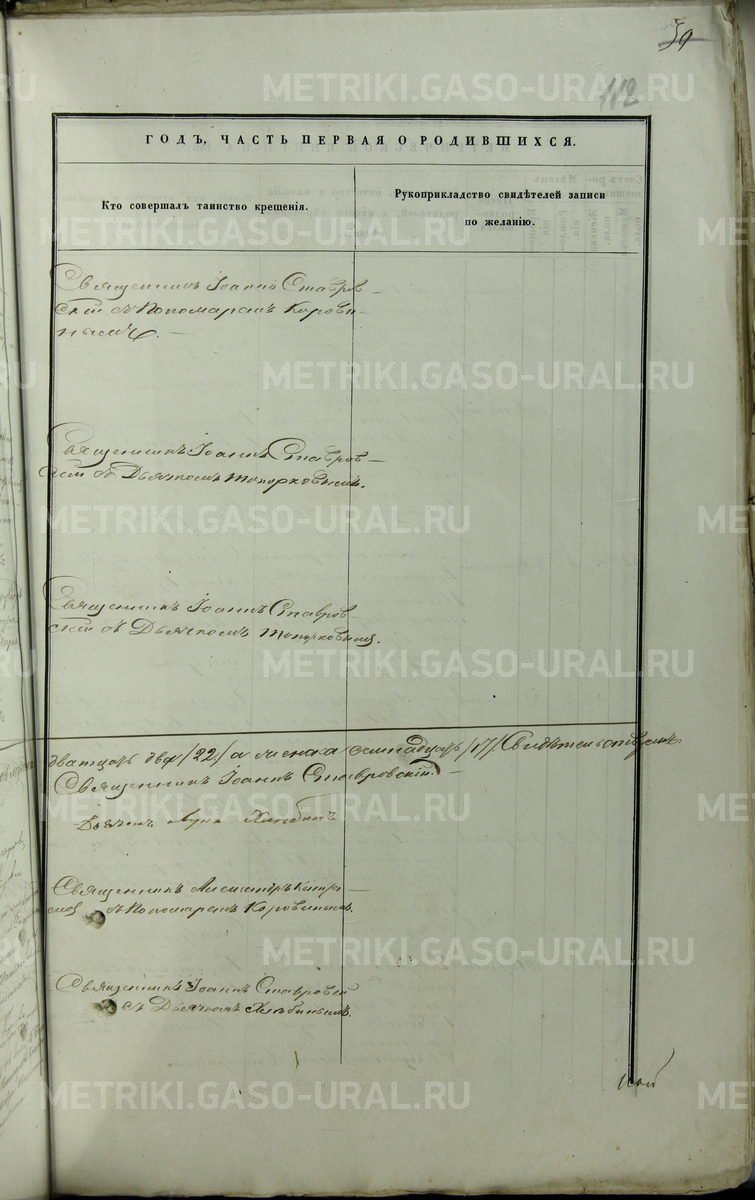 59
112
ГОДЪ, ЧАСТЬ ПЕРВАЯ О РОДИВШИХСЯ.
Кто совершалъ таинство крещенія.
Рукоприкладство свидѣтелей записи
по желанію.
Священникъ Іоаннъ Ставров-
скій съ Пономаремъ Корови-
нымъ.
Священникъ Іоаннъ Ставров-
скій съ Дьячкомъ Топорковымъ.
Священникъ Іоаннъ Ставров-
скій съ Дьячкомъ Топорковымъ.
дватцать два /22/ а женска семнадцать /17/ Свидѣтельствуемъ:
Священникъ Іоаннъ Ставровскій.
Лука
Священникъ
съ Пономаремъ Коровинымъ.
Священникъ Іоаннъ Ставровскій
съ Дьячкомъ Хлѣбинымъ.
METRIKI.GASO-URAL.RU